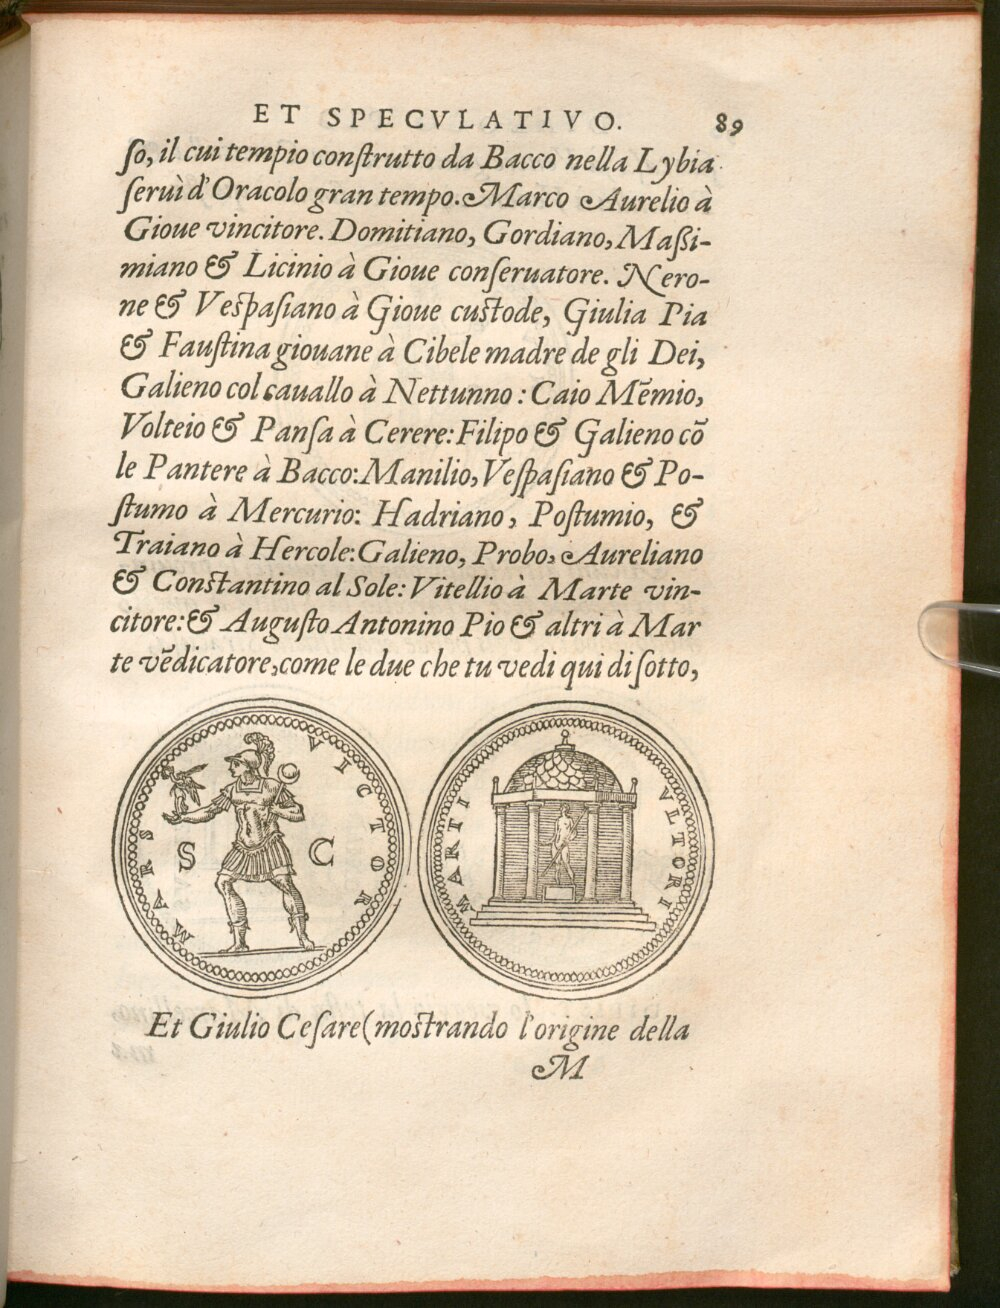 ET SPECVLATIVO. 89
ſo, il cui tempio conſtrutto da Bacco nella Lybia
ſeruì d'Oracolo gran tempo. Marco Aurelio à
Gioue vincitore. Domitiano, Gordiano, Maſsi-
miano & Licinio à Gioue conſeruatore. Nero-
ne & Veſpaſiano à Gioue cuſtode, Giulia Pia
& Fauſtina giouane à Cibele madre de gli Dei,
Galieno col cauallo à Nettunno: Caio Mẽmio,
Volteio & Panſa à Cerere: Filipo & Galieno cõ
le Pantere à Bacco: Manilio, Veſpaſiano & Po-
ſtumo à Mercurio: Hadriano, Poſtumio, &
Traiano à Hercole: Galieno, Probo, Aureliano
& Conſtantino al Sole: Vitellio à Marte vin-
citore: & Auguſto Antonino Pio & altri à Mar
te vẽdicatore, come le due che tu vedi qui di ſotto,
MARS VICTOR
S C
MARTI VLTORI
Et Giulio Ceſare (moſtrando l'origine della
M